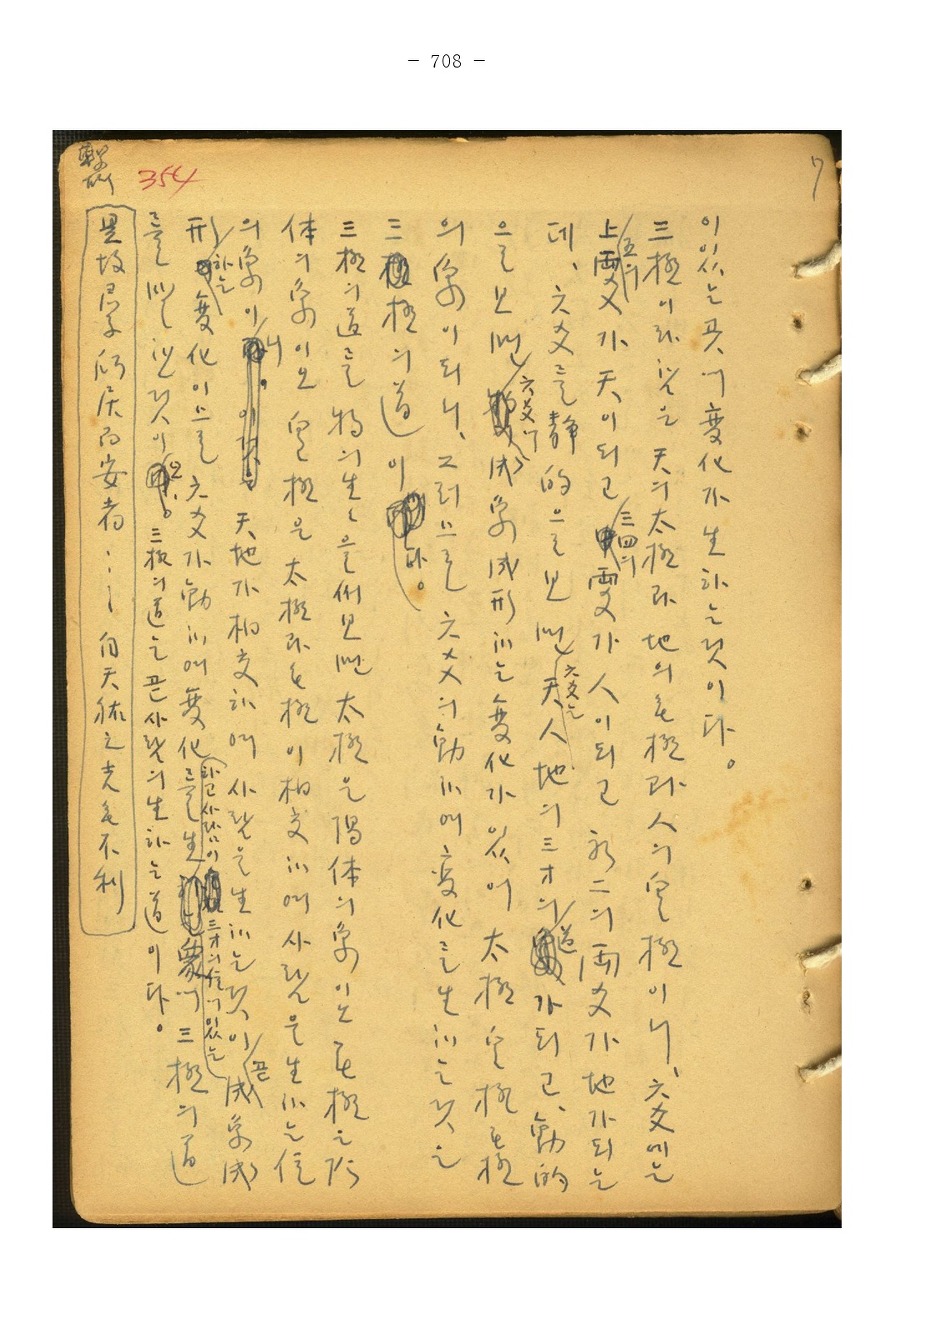 - 708 -
7
이 있는 곳에 變化가 生하는 것이다。
三極이라 함은 天의太極과 地의无極과 人의皇極이니、六爻에는
上五의兩爻가 天이되고 三四의兩爻가 人이되고 初二의兩爻가 地가되는
데、六爻를 靜的으로 보면 六爻는 天人地의 三才의道가되고、動的
으로 보면 六爻에 成象成形하는 變化가 있어 太極皇極无極
의 象이되니、그러므로 六爻의 動하여 變化를 生하는 것은
三極의道이다。
三極의道를 物의生生으로써 보면 太極은 陽体의象이오 无極은 陰
体의象이오 皇極은 太極과无極이 相交하여 사람을 生하는 位
의象이니 天地가 相交하여 사람을 生하는것이 곧 成象成
形하는 變化이므로 六爻가 動하여 變化를 生하고 三極의道
를 말한것이오、三極의道는 곧 사람의 生하는 道이다。
是故君子所居而安者……自天祐之吉无不利
繫
354